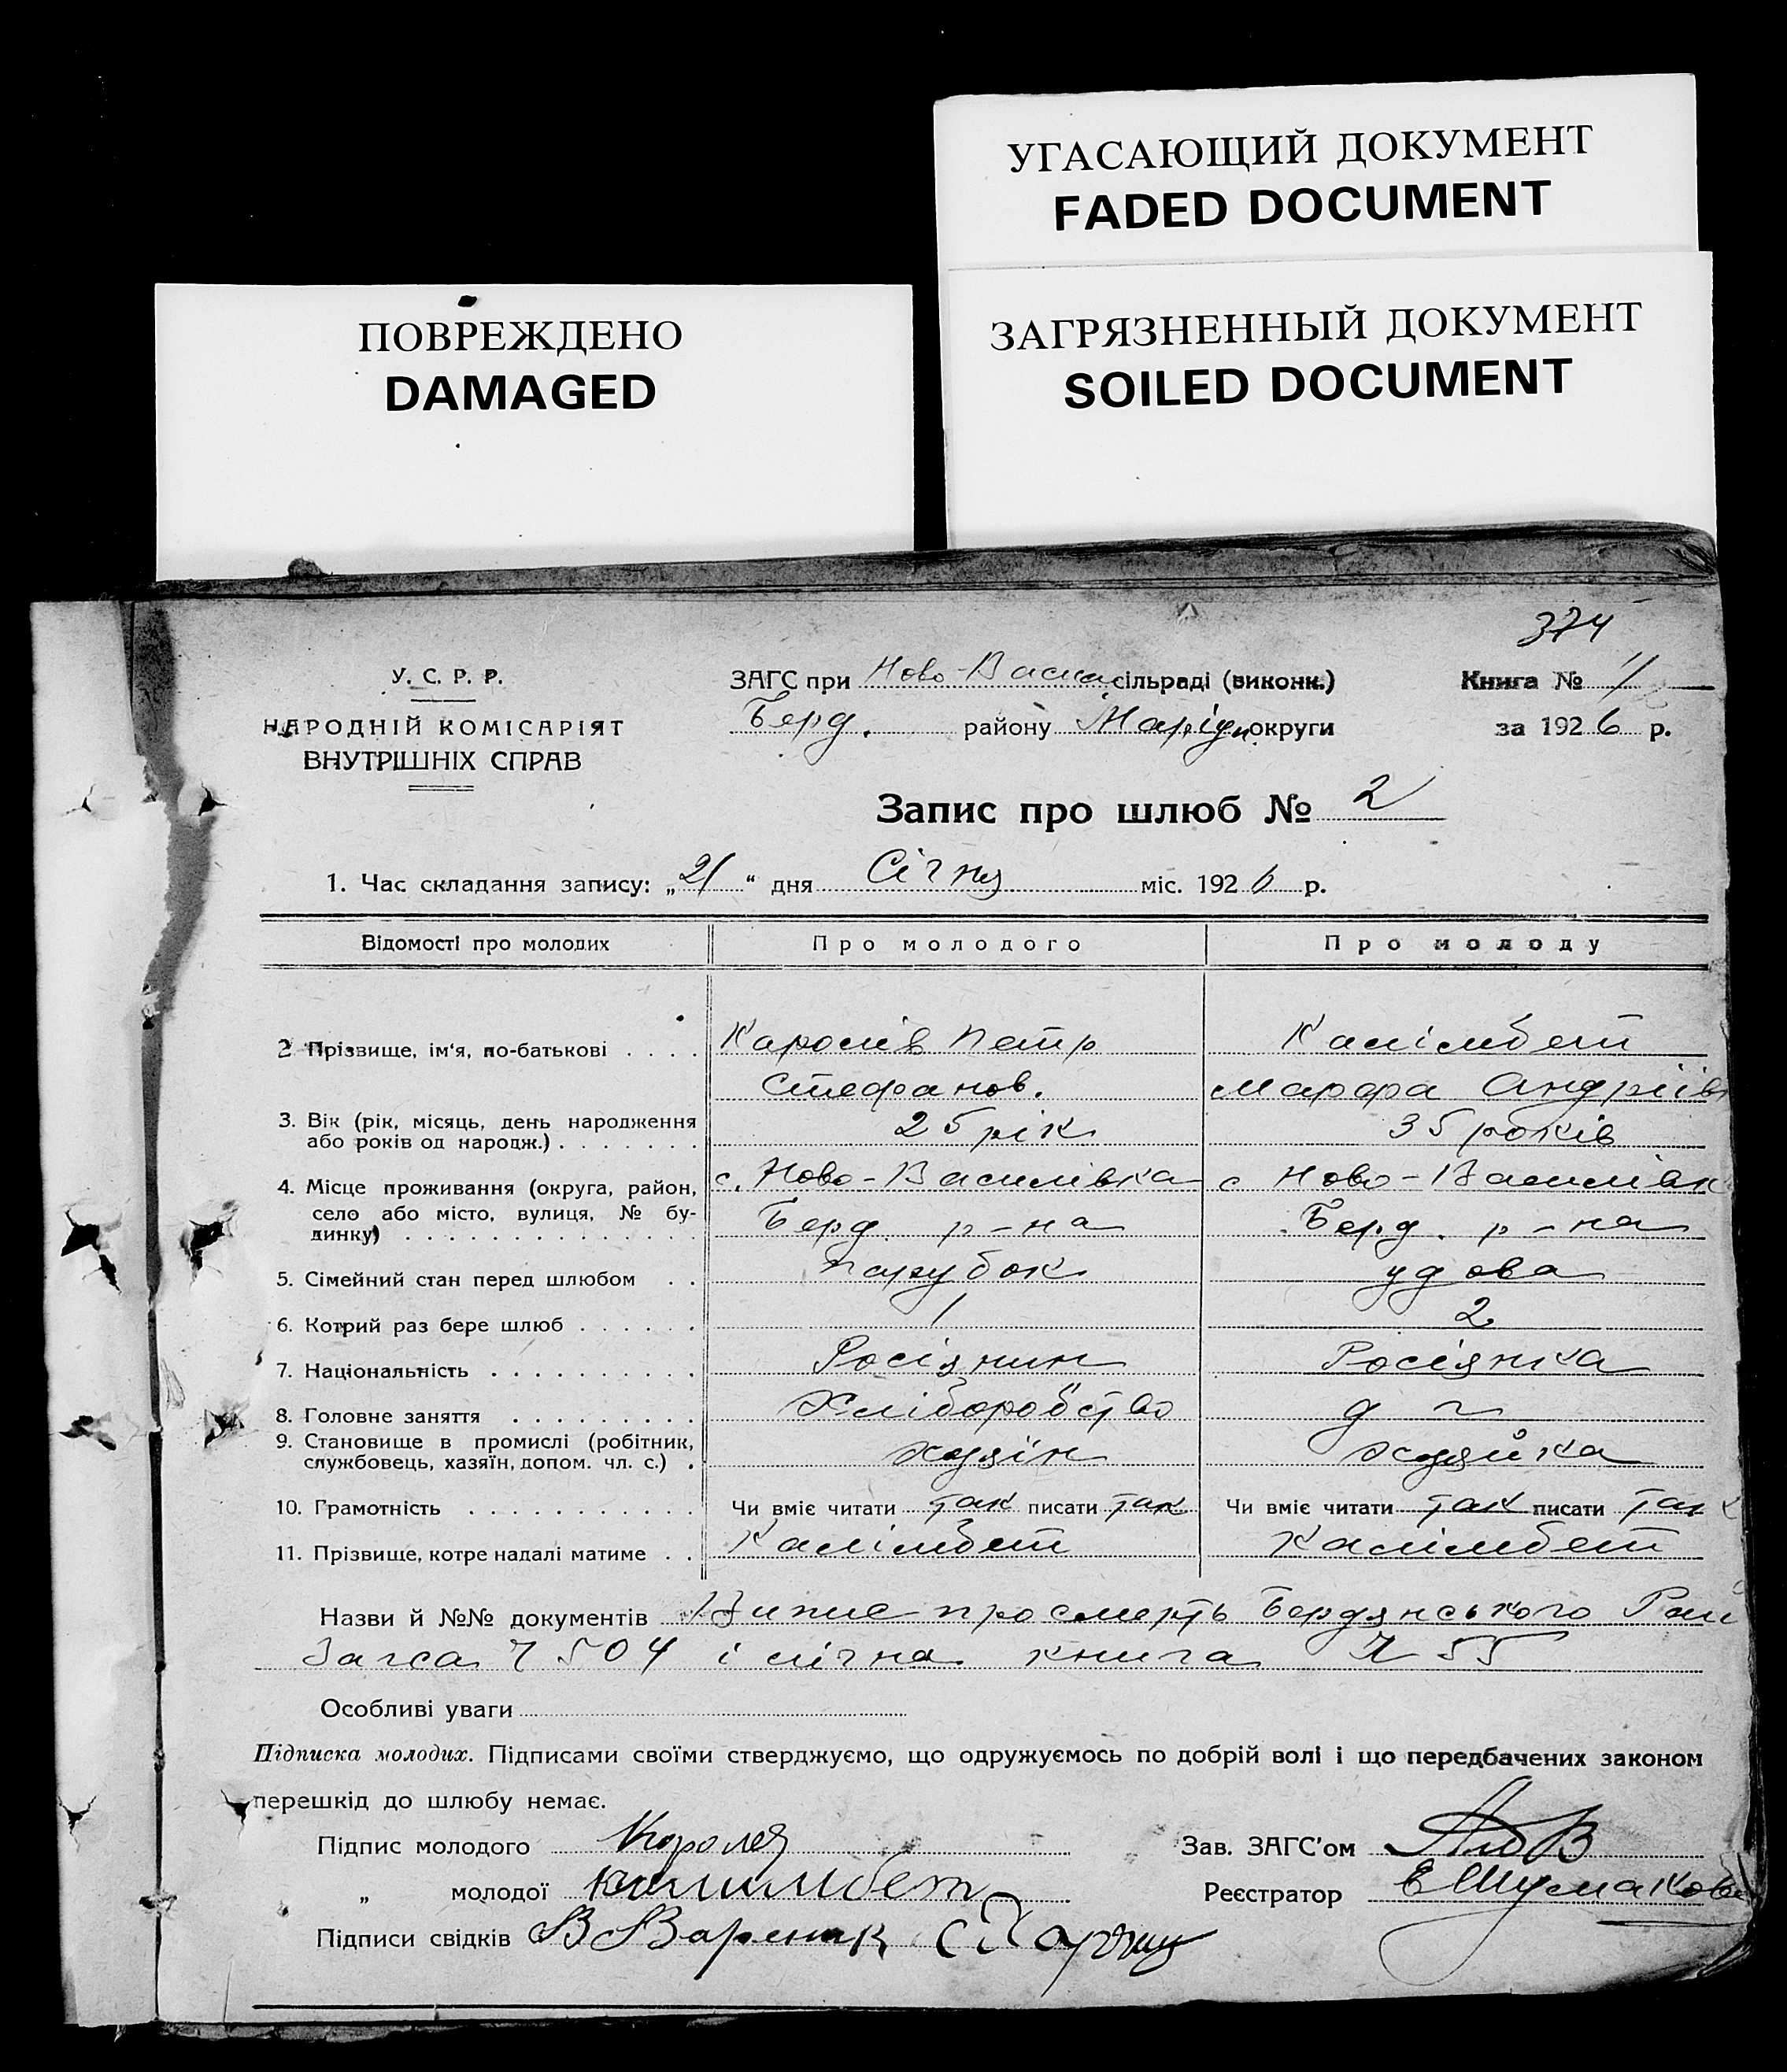 УГАСАЮЩИЙ ДОКУМЕНТ
FADED DOCUMENT
ПОВРЕЖДЕНО
DAMAGED
ЗАГРЯЗНЕННЫЙ ДОКУМЕНТ
SOILED DOCUMENT
374
У. С. Р. Р.
НАРОДНІЙ КОМІСАРІЯТ
ВНУТРІШНІХ СПРАВ
ЗАГС при Ново-Васил сільраді (виконк.)
Берд. району Маріуп. округи
Книга № 1
за 1926 р.
Запис про шлюб № 2
1. Час складання запису: „21“ дня Січня міс. 1926 р.
Відомості про молодих Про молодого Про молоду
2 Прізвище, ім'я, по-батькові . . . . Каролів Петр Калімбет
Стефанов. Марфа Андріїв
3. Вік (рік, місяць, день народження
або років од народж.) . . . . . . . 25 рік 35 років
4. Місце проживання (округа, район, с. Ново-Василівка с Ново-Василівк
село або місто, вулиця, № бу-
динку) . . . . . . . . . . . . . . Берд. р-на Берд. р-на
5. Сімейний стан перед шлюбом . . парубок удова
6. Котрий раз бере шлюб . . . . . . 1 2
7. Національність . . . . . . . . . . Росіянин Росіянка
8. Головне заняття . . . . . . . . . Хліборобство
9. Становище в промислі (робітник,
службовець, хазяїн, допом. чл. с.) . хозяїн хозяйка
10. Грамотність . . . . . . . . . . . Чи вміє читати так писати так Чи вміє читати так писати так
11. Прізвище, котре надалі матиме . . Калімбет Калімбет
Назви й №№ документів Випис про смерть Бердянського Рай
Загса 504 і книга 55
Особливі уваги
Підписка молодих. Підписами своїми стверджуємо, що одружуємось по добрій волі і що передбачених законом
перешкід до шлюбу немає.
Підпис молодого Королев Зав. ЗАГС'ом
„ молодої Калимбет Реєстратор Е Шумакова
Підписи свідків